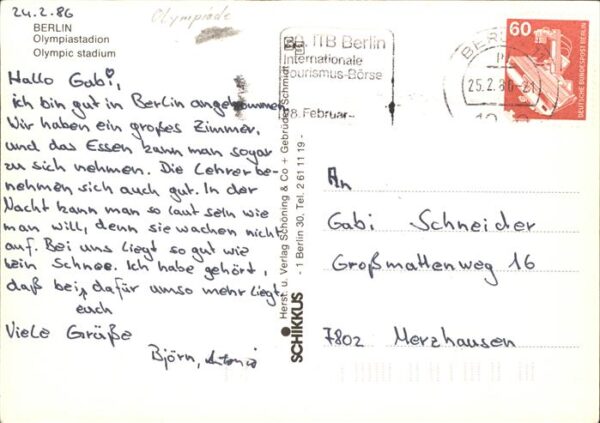 24.2.86
Olympiade
BERLIN
Olympiastadion
Olympic stadium
Hallo Gabi,
ich bin gut in Berlin angekommen.
Wir haben ein großes Zimmer,
und das Essen kann man sogar
zu sich nehmen. Die Lehrer be-
nehmen sich auch gut. In der
Nacht kann man so laut sein wie
man will, denn sie wachen nicht
auf. Bei uns liegt so gut wie
kein Schnee. Ich habe gehört,
daß bei euch dafür umso mehr liegt.
Viele Grüße
Björn, Antonio
SCHIKKUS
Herst. u. Verlag Schöning & Co + Gebrüder Schmidt
- 1 Berlin 30, Tel. 2 61 11 19 -
ITB Berlin
Internationale
Tourismus-Börse
8. Februar-
BERLIN
25.2.86-21
60
DEUTSCHE BUNDESPOST BERLIN
An
Gabi Schneider
Großmattenweg 16
7802 Merzhausen